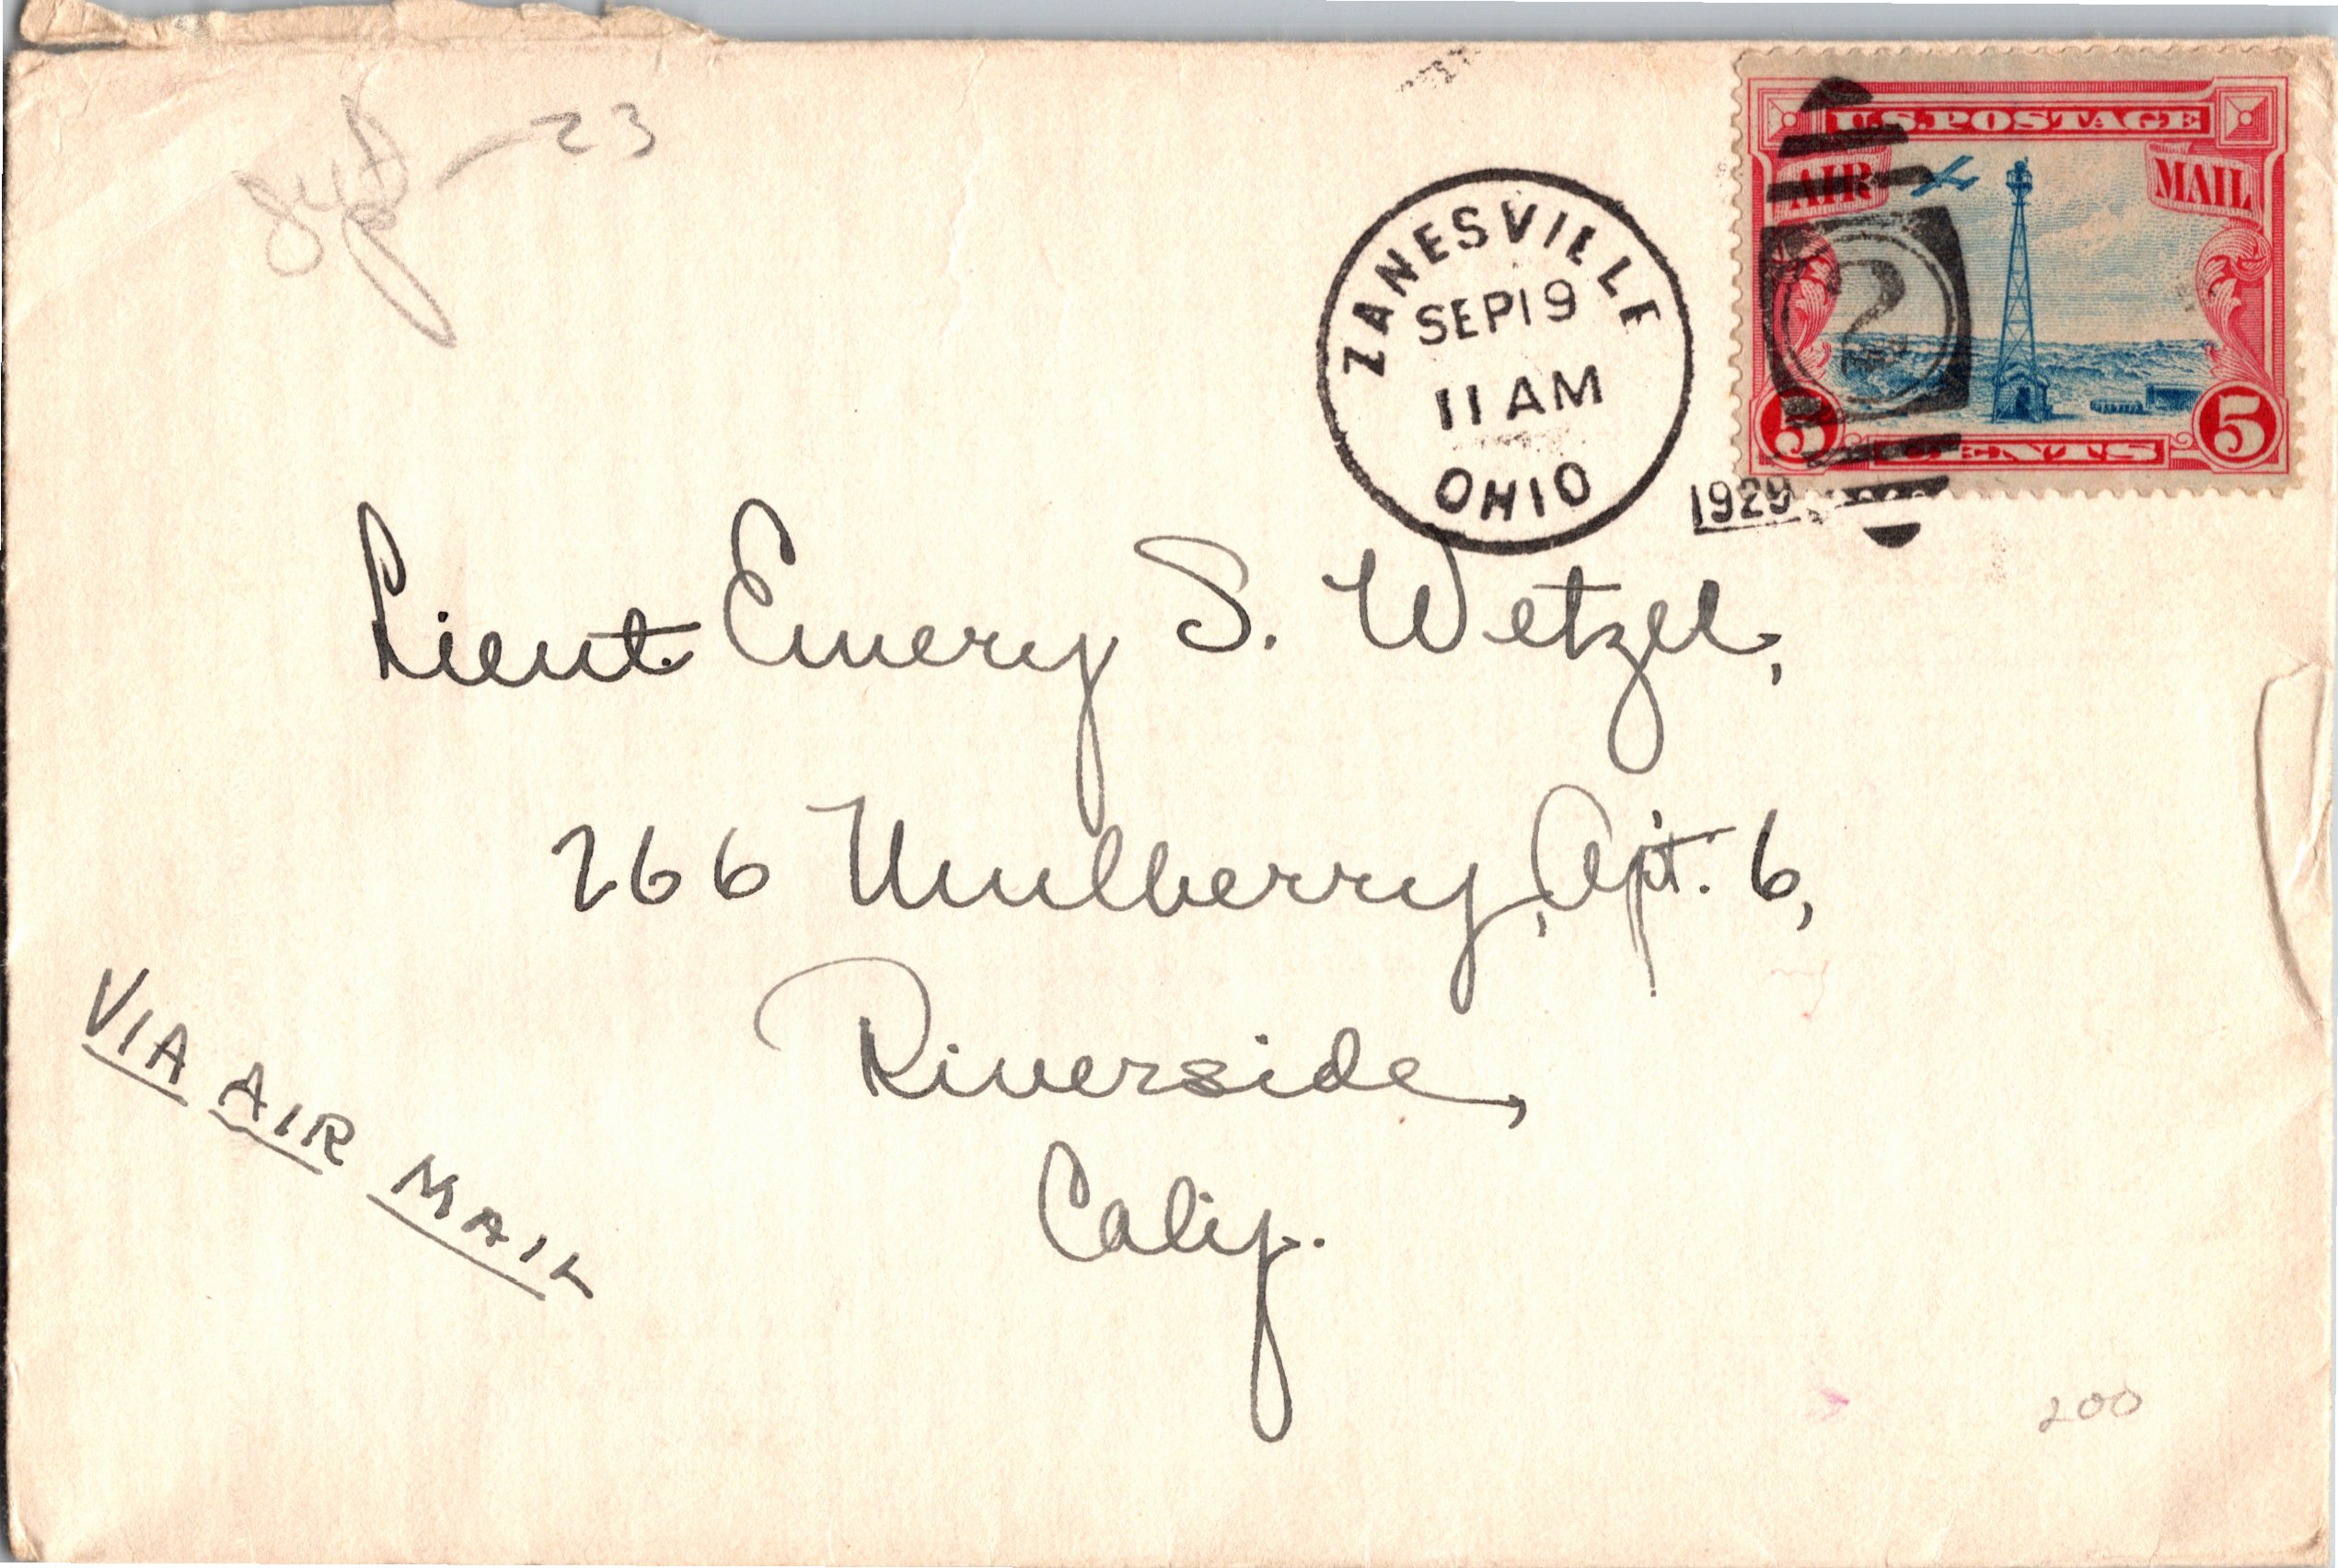 Sept - 23
U.S. POSTAGE
AIR MAIL
2
5 CENTS 5
ZANESVILLE
SEP 19
11 AM
OHIO
1929
Lieut Emery S. Wetzel,
266 Mulberry, Apt. 6,
Riverside,
Calif.
VIA AIR MAIL
200